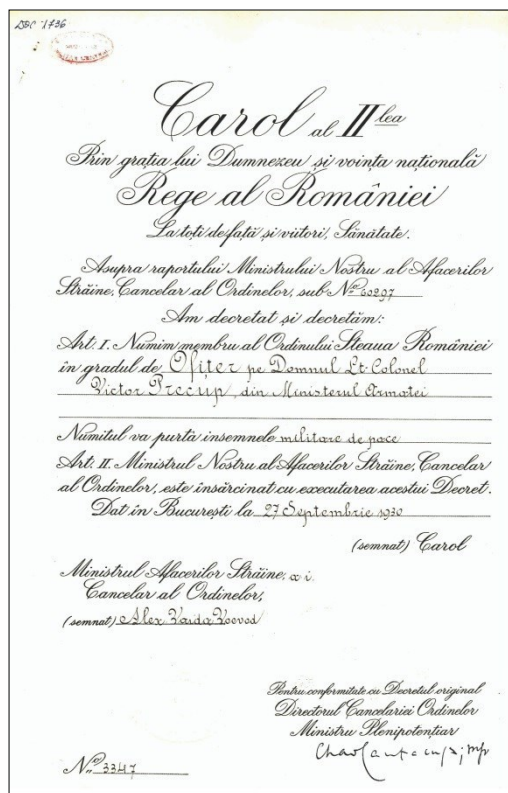 DOC 1736
Carol al II lea
Prin grația lui Dumnezeu și voința națională
Rege al României
La toți de față și viitori, Sănătate.
Asupra raportului Ministrului Nostru al Afacerilor
Străine, Cancelar al Ordinelor, sub No 60297
Am decretat și decretăm:
Art. I. Numim membru al Ordinului Steaua României
în gradul de Ofițer pe Domnul Lt. Colonel
Victor Precup, din Ministerul Armatei
Numitul va purta însemnele militare de pace
Art. II. Ministrul Nostru al Afacerilor Străine, Cancelar
al Ordinelor, este însărcinat cu executarea acestui Decret.
Dat în București la 27 Septembrie 1930
(semnat) Carol
Ministrul Afacerilor Străine, a.i.
Cancelar al Ordinelor,
(semnat) Alex Vaida Voevod
Pentru conformitate cu Decretul original
Directorul Cancelariei Ordinelor
Ministru Plenipotențiar
No 3347